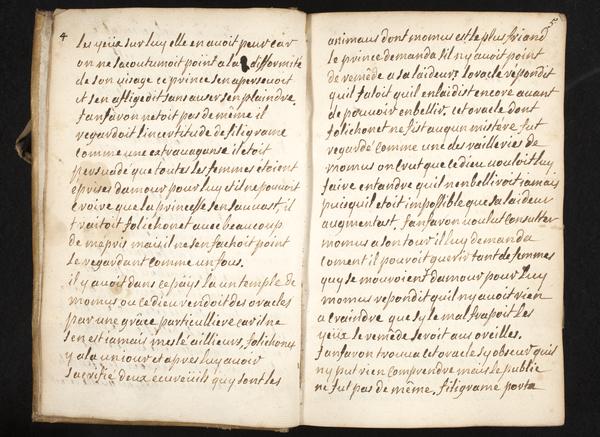 4
les yeux sur luy elle en avoit peur car
on ne sacoutumoit point a la difformité
de son visage ce prince sen apersevoit
et sen afligedit sans auser sen plaindre.
fanfaron netoit pas de même il
regardoit lincertitude de filigrame
comme une extravaganse il etoit
persuadé que toutes les femmes etoient
eprises damour pour luy sil ne pouvoit
croire que la princesse sen sauvast, il
traitoit folichonet avec beaucoup
de mepris mais il ne sen fachoit point
le regardant comme un fous.
il y avoit dans ce païs la un temple de
momus ou ce dieu rendoit des oracles
par une grâce particulliere car il ne
sen est iamais meslé ailleurs, folichonet
y ala un iour et apres luy avoir
sacrifié deux écureüils quy sont les
5
animaus dont momus est le plus friand
le prince demanda sil ny avoit point
de remède a sa laideur loracle repondit
quil faloit quil enlaidist encore avant
de pouvoir enbellir. cet oracle dont
folichonet ne fist augun mistere fut
regardé comme une des railleries de
momus on crut que ce dieu vouloit luy
faire entandre quil nenbelliroit iamais
puisquil etoit impossible que sa laideur
augmentast. fanfaron voulut consulter
momus a son tour il luy demanda
coment il pouvoit guerir tant de femmes
quy se mouroient damour pour luy
momus repondit quil ny avoit rien
a craindre que sy le mal frapoit les
yeux le remède seroit aus oreilles.
fanfaron trouva cet oracle sy obscur quil
ny put rien comprendre mais le public
ne fut pas de même. filigrame porta